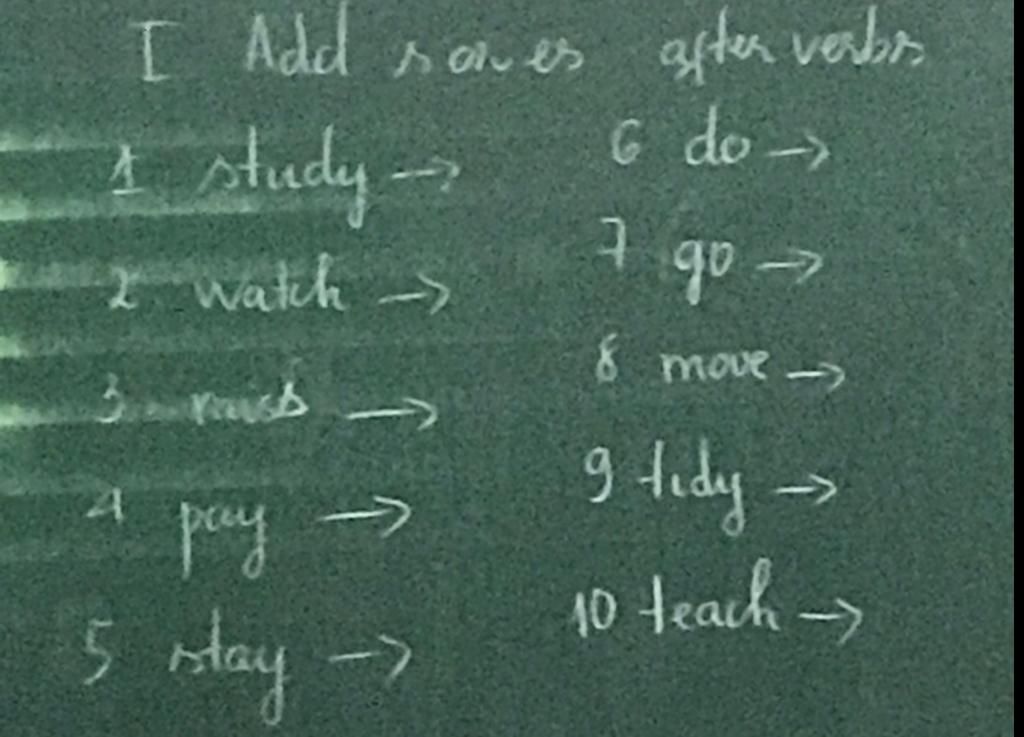 I Add s or es after verbs
1 study →
2 watch →
3 miss →
4 pay →
5 stay →
6 do →
7 go →
8 move →
9 tidy →
10 teach →